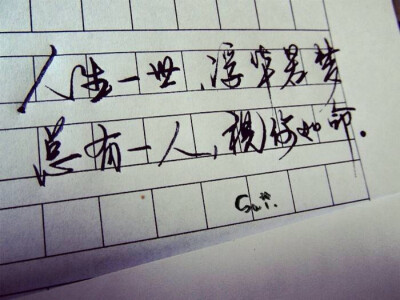 人生一世,浮华若梦
总有一人,视你如命.